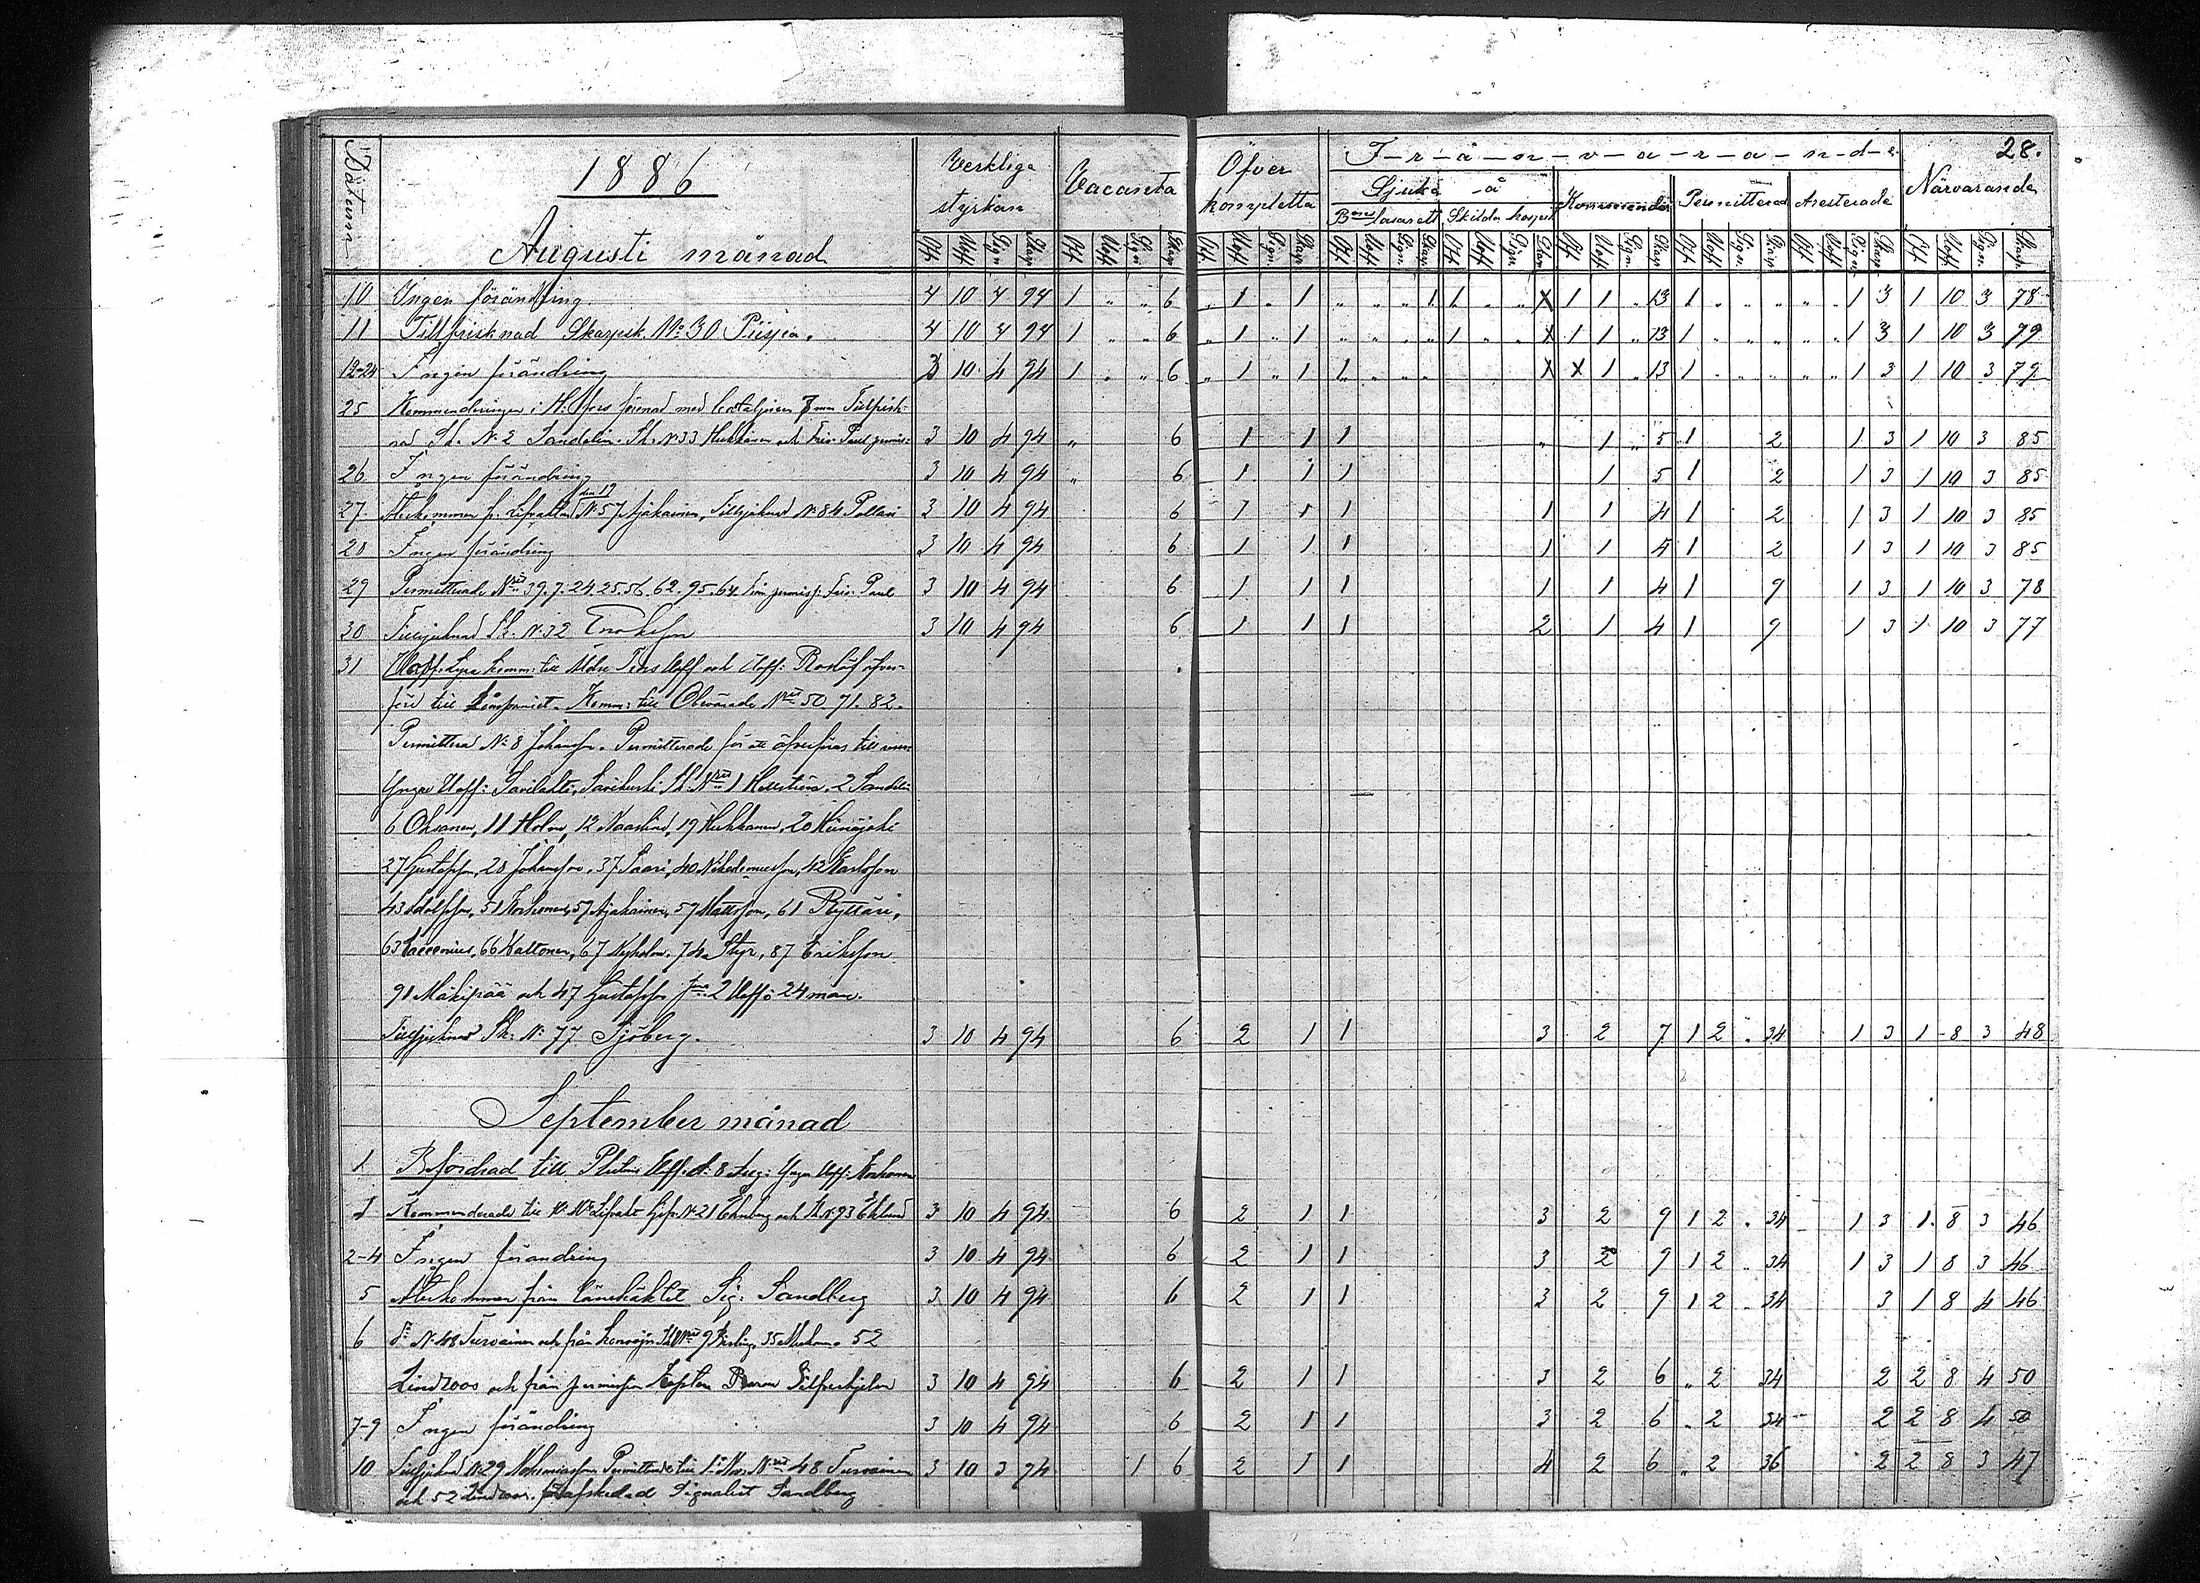 28.
Datum
1886
Augusti månad
Verkliga styrkan
Vacanta
Öfver kompletta
F-r-å-n-v-a-r-a-n-d-e
Sjuka å
Bons lasarett Skilda hospit.
Kommender. Permitterad Aresterade
Närvarande
10 Ingen förändring 4 10 4 94 1 " " 6 " 1 " 1 " " " 1 1 " " X 1 1 " 13 1 " " " " " 1 3 1 10 3 78
11 Tillfrisknad Skarpsk. No 30 Piispa. 4 10 4 94 1 " " 6 " 1 " 1 " " " 1 " " X 1 1 " 13 1 " " " " " 1 3 1 10 3 79
12-24 Ingen förändring 3 10 4 94 1 " " 6 " 1 " 1 1 " " " X X 1 " 13 1 " " " " " 1 3 1 10 3 79
25 Kommenderingen i H:fors förenad med bataljonen Tillfrisk-
nad Sk. No 2 Sandelin. Sk. No 33 Hukkanen och Paul 3 10 4 94 " 6 1 1 1 " 1 " 5 1 2 1 3 1 10 3 85
26 Ingen förändring 3 10 4 94 " 6 1 1 1 1 5 1 2 1 3 1 10 3 85
27 Återkommen fr. Lifvakten den 19 No 57 Ajakainen, Tillsjuknad No 84 Pollari 3 10 4 94 6 1 1 1 1 1 4 1 2 1 3 1 10 3 85
28 Ingen förändring 3 10 4 94 6 1 1 1 1 1 4 1 2 1 3 1 10 3 85
29 Permitterade Nris 39. 7. 24. 25. 56. 62. 95. 64. Paul 3 10 4 94 6 1 1 1 1 1 4 1 9 1 3 1 10 3 78
30 Tillsjuknad Sk. No 32 3 10 4 94 6 1 1 1 2 1 4 1 9 1 3 1 10 3 77
31 Uoff. Lyra komm: till Äldre Uoff och Uoff: Roslöf öfver-
förd till kompaniet. Komm: till Obevärade Nris 50. 71. 82.
Permitterad No 8 Johansson. Permitterade för att öfverföras till
Yngre Uoff: Savilahti, Sk: Nris 1 Hellström, 2 Sandelin
6 Oksanen, 11 Holm, 12 Naaslund, 19 Hukkanen, 20
27 Gustafsson, 28 Johansson, 37 Saari, 40 Nikodemusson, 42 Karlsson
43 Adolfsson, 51 Korhonen, 57 Ajakainen, 59 Mattsson, 61 Ryttäri,
63 66 Kaltonen, 67 Nyholm, 74 Styr, 87 Eriksson
91 Mäkipää och 47 Gustafsson 2 Uoff: 24 man.
Tillsjuknad Sk: No 77 Sjöberg. 3 10 4 94 6 2 1 1 3 2 7 1 2 " 34 1 3 1 8 3 48
September månad
1 Befordrad till Plutons Uoff. d: 8 Aug: Yngre Uoff: Korhonen
1 Kommenderade till Lifvakt Gefr. No 21 Ehnberg och Sk No 93 Eklund 3 10 4 94 6 2 1 1 3 2 9 1 2 " 34 1 3 1 8 3 46
2-4 Ingen förändring 3 10 4 94 6 2 1 1 3 2 9 1 2 " 34 1 3 1 8 3 46
5 Återkommen från länehäktet Sig: Sandberg 3 10 4 94 6 2 1 1 3 2 9 1 2 " 34 3 1 8 4 46
6 No 48 Turvainen och från 9 35 52
Lindroos och från permission Kapten Baron Silfverhjelm 3 10 4 94 6 2 1 1 3 2 6 " 2 34 2 2 8 4 50
7-9 Ingen förändring 3 10 4 94 6 2 1 1 3 2 6 " 2 34 2 2 8 4 50
10 Tillsjuknad No 29 Permitterade till Nris 48 Turvainen 3 10 3 94 1 6 2 1 1 4 2 6 " 2 36 2 2 8 3 47
och 52 Lindroos. Afskedad Signalist Sandberg